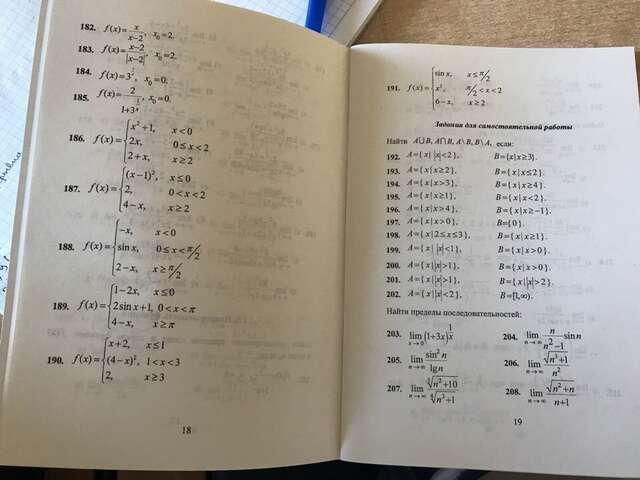 182. f(x)=x/(x−2), x₀=2.
183. f(x)=(x−2)/|x−2|, x₀=2.
184. f(x)=3^(1/x), x₀=0.
185. f(x)=2/(1+3^(1/x)), x₀=0.
186. f(x)={x²+1, x<0
2x, 0≤x<2
2+x, x≥2
187. f(x)={(x−1)², x≤0
2, 0<x<2
4−x, x≥2
188. f(x)={−x, x<0
sin x, 0≤x<π/2
2−x, x≥π/2
189. f(x)={1−2x, x≤0
2sin x+1, 0<x<π
4−x, x≥π
190. f(x)={x+2, x≤1
(4−x)², 1<x<3
2, x≥3
18
191. f(x)={sin x, x≤π/2
x², π/2<x<2
6−x, x≥2
Задания для самостоятельной работы
Найти A∪B, A∩B, A\B, B\A, если:
192. A={x||x|<2}, B={x|x≥3}.
193. A={x|x≥2}, B={x|x≤2}.
194. A={x|x>3}, B={x|x≥4}.
195. A={x|x≥1}, B={x|x<2}.
196. A={x|x>4}, B={x|x≥−1}.
197. A={x|x>0}, B={0}.
198. A={x|2≤x≤3}, B={x|x≥1}.
199. A={x||x|<1}, B={x|x>0}.
200. A={x||x|>1}, B={x|x>0}.
201. A={x||x|>1}, B={x||x|>2}.
202. A={x||x|<2}, B=[1,∞).
Найти пределы последовательностей:
203. lim x→0 (1+3x)^(1/x) 204. lim n→∞ n/(n²−1) sin n
205. lim n→∞ sin² n/lg n 206. lim n→∞ √(n³+1)/n²
207. lim n→∞ ∛(n²+10)/∜(n³+1) 208. lim n→∞ √(n²+n)/(n+1)
19